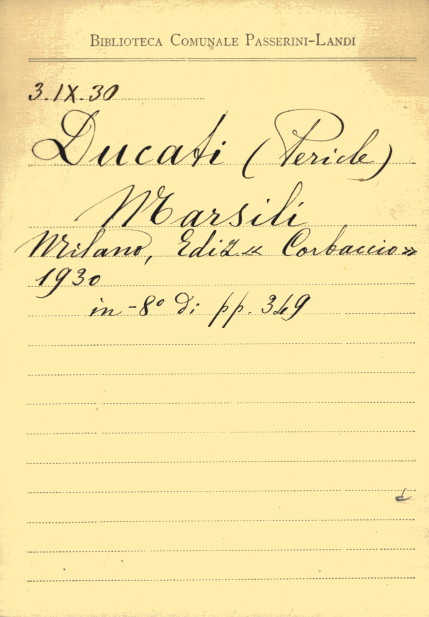 BIBLIOTECA COMUNALE PASSERINI-LANDI
3.IX.30
Ducati (Pericle)
Marsili
Milano, Ediz « Corbaccio »
1930
in-8° di pp. 349